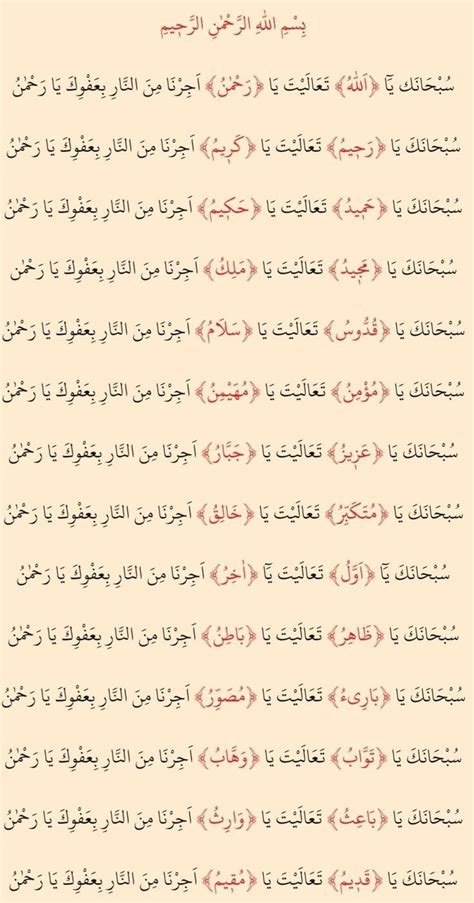 بِسْمِ اللهِ الرَّحْمٰنِ الرَّحٖيمِ
سُبْحَانَكَ يَٓا ﴿اَللهُ﴾ تَعَالَيْتَ يَا ﴿رَحْمٰنُ﴾ اَجِرْنَا مِنَ النَّارِ بِعَفْوِكَ يَا رَحْمٰنُ
سُبْحَانَكَ يَا ﴿رَحٖيمُ﴾ تَعَالَيْتَ يَا ﴿كَرٖيمُ﴾ اَجِرْنَا مِنَ النَّارِ بِعَفْوِكَ يَا رَحْمٰنُ
سُبْحَانَكَ يَا ﴿حَمٖيدُ﴾ تَعَالَيْتَ يَا ﴿حَكٖيمُ﴾ اَجِرْنَا مِنَ النَّارِ بِعَفْوِكَ يَا رَحْمٰنُ
سُبْحَانَكَ يَا ﴿مَجٖيدُ﴾ تَعَالَيْتَ يَا ﴿مَلِكُ﴾ اَجِرْنَا مِنَ النَّارِ بِعَفْوِكَ يَا رَحْمٰن
سُبْحَانَكَ يَا ﴿قُدُّوسُ﴾ تَعَالَيْتَ يَا ﴿سَلَامُ﴾ اَجِرْنَا مِنَ النَّارِ بِعَفْوِكَ يَا رَحْمٰنُ
سُبْحَانَكَ يَا ﴿مُؤْمِنُ﴾ تَعَالَيْتَ يَا ﴿مُهَيْمِنُ﴾ اَجِرْنَا مِنَ النَّارِ بِعَفْوِكَ يَا رَحْمٰنُ
سُبْحَانَكَ يَا ﴿عَزٖيزُ﴾ تَعَالَيْتَ يَا ﴿جَبَّارُ﴾ اَجِرْنَا مِنَ النَّارِ بِعَفْوِكَ يَا رَحْمٰنُ
سُبْحَانَكَ يَا ﴿مُتَكَبِّرُ﴾ تَعَالَيْتَ يَا ﴿خَالِقُ﴾ اَجِرْنَا مِنَ النَّارِ بِعَفْوِكَ يَا رَحْمٰنُ
سُبْحَانَكَ يَٓا ﴿اَوَّلُ﴾ تَعَالَيْتَ يَٓا ﴿اٰخِرُ﴾ اَجِرْنَا مِنَ النَّارِ بِعَفْوِكَ يَا رَحْمٰنُ
سُبْحَانَكَ يَا ﴿ظَاهِرُ﴾ تَعَالَيْتَ يَا ﴿بَاطِنُ﴾ اَجِرْنَا مِنَ النَّارِ بِعَفْوِكَ يَا رَحْمٰنُ
سُبْحَانَكَ يَا ﴿بَارِىءُ﴾ تَعَالَيْتَ يَا ﴿مُصَوِّرُ﴾ اَجِرْنَا مِنَ النَّارِ بِعَفْوِكَ يَا رَحْمٰنُ
سُبْحَانَكَ يَا ﴿تَوَّابُ﴾ تَعَالَيْتَ يَا ﴿وَهَّابُ﴾ اَجِرْنَا مِنَ النَّارِ بِعَفْوِكَ يَا رَحْمٰنُ
سُبْحَانَكَ يَا ﴿بَاعِثُ﴾ تَعَالَيْتَ يَا ﴿وَارِثُ﴾ اَجِرْنَا مِنَ النَّارِ بِعَفْوِكَ يَا رَحْمٰنُ
سُبْحَانَكَ يَا ﴿قَدٖيمُ﴾ تَعَالَيْتَ يَا ﴿مُقٖيمُ﴾ اَجِرْنَا مِنَ النَّارِ بِعَفْوِكَ يَا رَحْمٰنُ